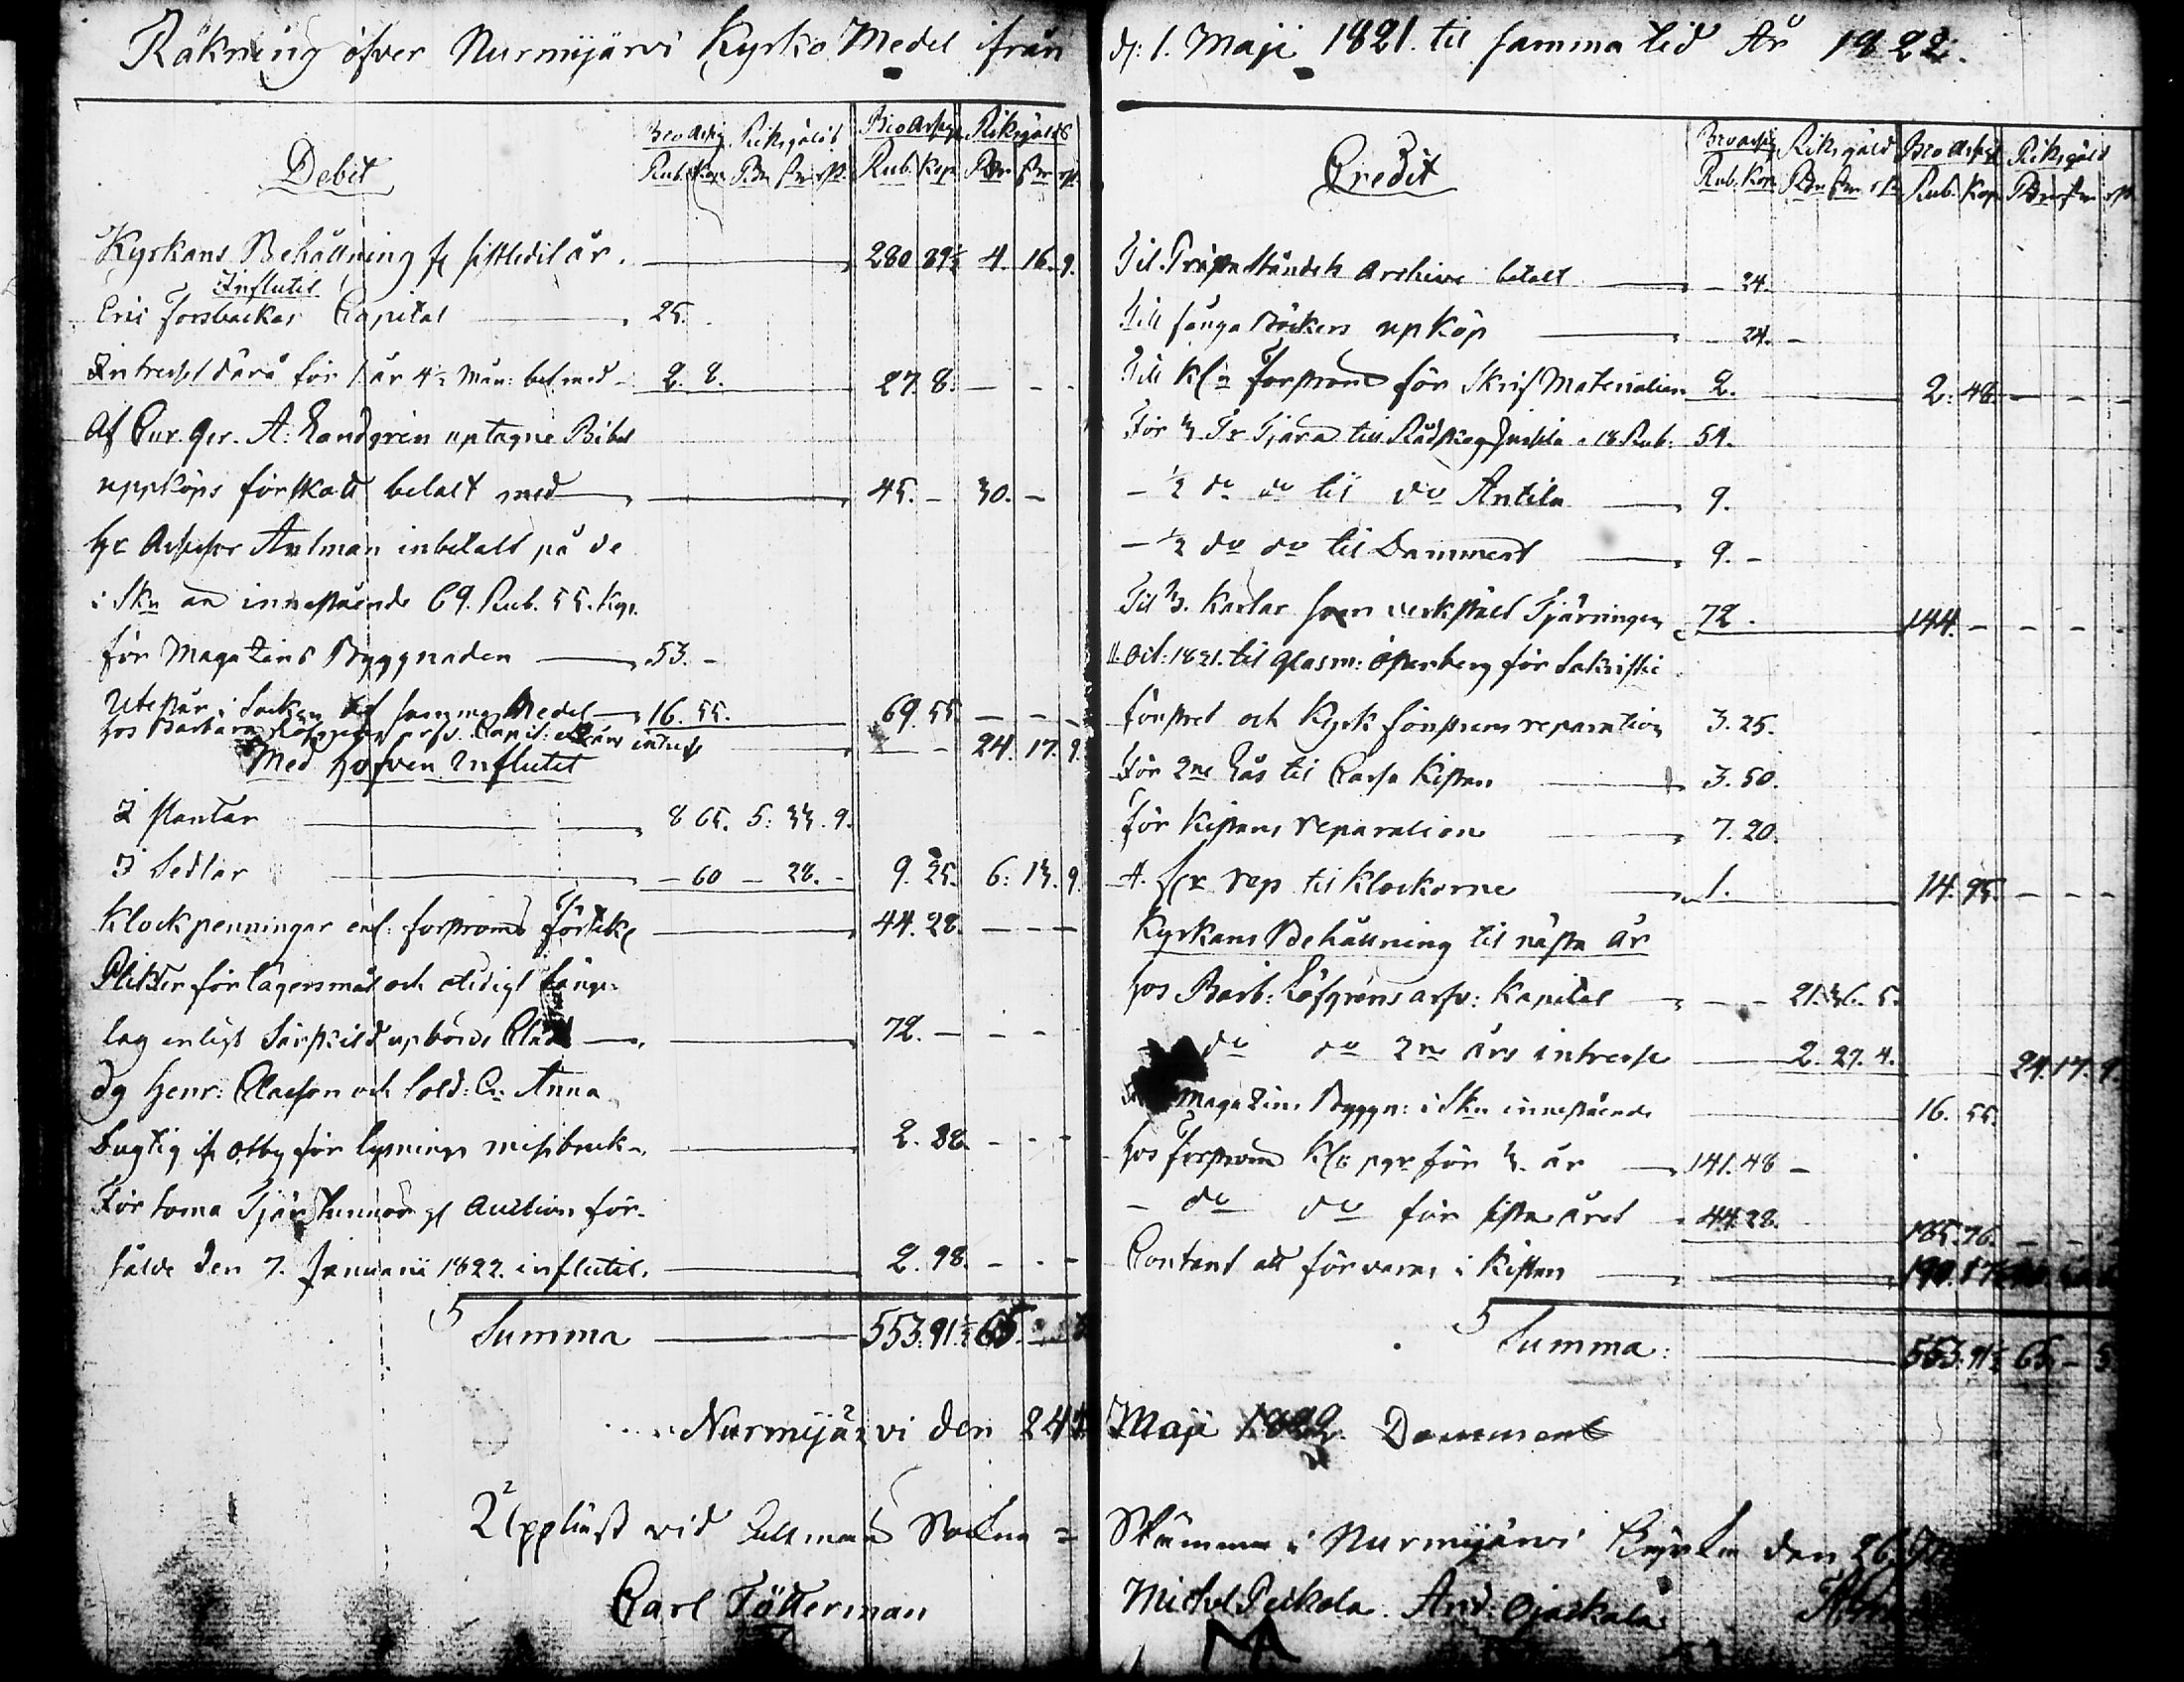 Räkning öfver Nurmijärvi Kyrko Medel ifrån
Debit
Bco Assig. Riksgälds Bco Assig. Riksgälds
Rub. Kop. Rdr sk. rst. Rub. Kop. Rdr sk. rst.
Kyrkans Behållning fr sistledit år. 280 89½ 4. 16. 9.
Influtit
Eric Forsbackas Capital 25.
Intresset därå för 1. år 4½ Mån: bet. med 2. 8. 27. 8. - - -
Af A: Landgren uptagne Bibel
uppköps förskott betalt med 45. - 30. -
Hr Assessor Antman inbetalt på de
i Skn innestående 69. Rub. 55. Kop.
för Magazins Byggnaden 53. -
Utestår i Socken af samma Medel 16. 55. 69. 55. - - -
hos Barbara arfv. Capit: intresse - - 24. 17. 9.
Med Hofven Influtit
I slantar 8 65. 5: 33. 9.
I Sedlar - 60 - 28. - 9. 25. 6: 13. 9.
Klockpenningar enl: forstroms 44. 28. - - -
Plikter för lägersmål och otidigt säng-
lag enligt särskild upbörds 72. - - -
Dg Henr: Claesson och Sold: Anna
för lysnings missbruk 2. 88. - - -
För toma Tjär Tunnor Auction för-
sålde den 7. Januarii 1822. influtit. 2. 98. - - -
Summa 553. 91½ 65.
Nurmijärvi den 24
Uppläst vid Sockne =
Carl Fötterman
d: 1. Maji 1821. til samma tid År 1822.
Credit
Bco Assig Riksgäld Bco Assig Riksgäld
Rub. Kop. Rdr sk. rst. Rub. Kop. Rdr sk. rst.
Til Präste Ståndets Archive betalt - 24.
Till sånga Böckers upköp - 24. -
Till Forstrom för Skrif Materialier 2. 2. 48. - - -
För 3 Tr Tjära till a 18 Rub. 54.
- ½ do do til do Antila 9.
- ½ do do til Dammert 9. -
Til Karlar som verkstält Tjärningen 72. 144. - - -
Oct: 1821. til Glasm: Österberg för Sakristie
fönstret och Kyrk fönstrens reparation 3. 25.
För 2ne Lås til Cassa Kistan 3. 50.
för Kistans reparation 7. 20.
rep til Klockorne 1. 14. 95. - - -
Kyrkans Behållning til nästa år
hos Barb: Löfgrens arfv: Kapital - - 21. 36. 5.
do do 2ne års intresse 2. 27. 4. 24. 17. 9.
Magazins Byggn: i Skn innestående 16. 55.
hos Forstrom för 3. år 141. 48 -
- do do för sista året 44. 28. 185. 76. - - -
Contant att förvaras i Kistan
Summa: 553. 91½ 65. - 3.
Maji 1822. Dammert
Stämma i Nurmijärvi Kyrka den 26
Michel Peltola. And: Ojackala